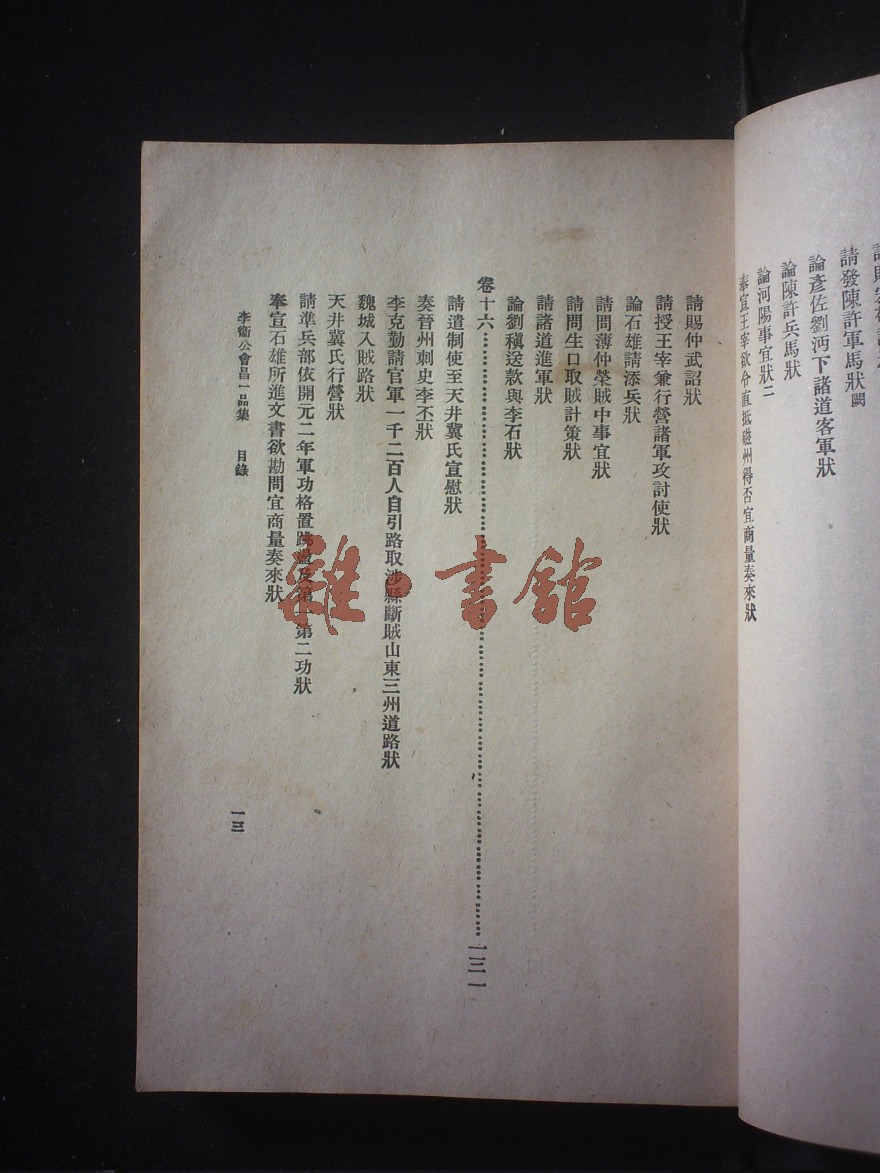 請發陳許軍馬狀闕
論彥佐劉沔下諸道客軍狀
論陳許兵馬狀
論河陽事宜狀二
奉宣王宰欲令直抵磁州得否宜商量奏來狀
請賜仲武詔狀
請授王宰兼行營諸軍攻討使狀
論石雄請添兵狀
請問薄仲榮賊中事宜狀
請問生口取賊計策狀
請諸道進軍狀
論劉稹送款與李石狀
卷十六 一三一
請遣制使至天井冀氏宣慰狀
奏晉州刺史李丕狀
李克勤請官軍一千二百人自引路取涉縣斷賊山東三州道路狀
魏城入賊路狀
天井冀氏行營狀
請準兵部依開元二年軍功格置跳盪及第一第二功狀
奉宣石雄所進文書欲勘問宜商量奏來狀
李衞公會昌一品集 目錄
一三
雜·書館